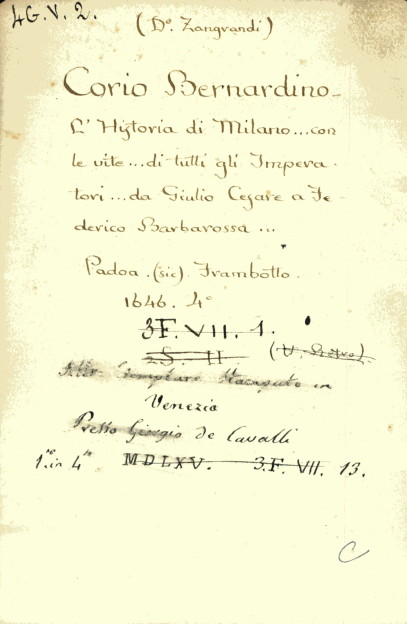 4G. V. 2.
(Do. Zangrandi)
Corio Bernardino–
L' Hystoria di Milano...con
le vite...di tutti gli Impera-
tori...da Giulio Cesare a Fe-
derico Barbarossa ...
Padoa. (sic) Frambotto.
1646. 4°
3F. VII. 1.
2S. II
Altro Esemplare Stampato in
Venezia
Presso Giorgio de Cavalli
1. in 4° MDLXV. 3.F. VII. 13.
C